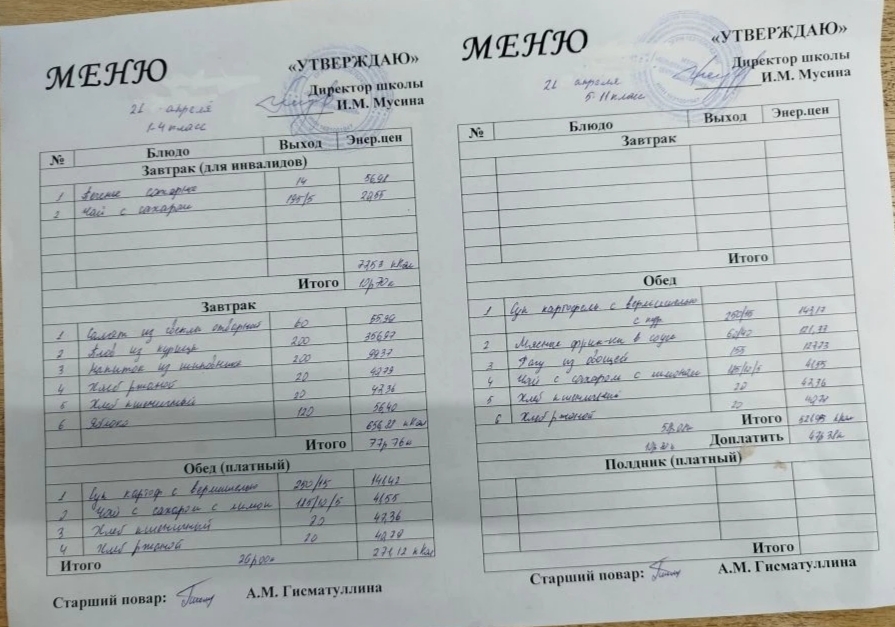 МЕНЮ
«УТВЕРЖДАЮ»
Директор школы
И.М. Мусина
21 апреля
1-4 класс
№ Блюдо Выход Энер.цен
Завтрак (для инвалидов)
1 Печенье сахарное 14
2 Чай с сахаром 195/5
77,53 кКал
Итого 10р70к
Завтрак
1 Салат из свеклы отварной 60 55,90
2 Плов из курицы 200
3 Напиток из шиповника 200
4 Хлеб ржаной 20
5 Хлеб пшеничный 20 47,36
6 Яблоко 120 56,40
кКал
Итого 77р76к
Обед (платный)
1 Суп картоф с вермишелью 250/15
2 Чай с сахаром с лимон 185/10/5 41,55
3 Хлеб пшеничный 20 47,36
4 Хлеб ржаной 20
Итого 26р00к 271,12 кКал
Старший повар: А.М. Гисматуллина
МЕНЮ
«УТВЕРЖДАЮ»
Директор школы
И.М. Мусина
21 апреля
5-11 класс
№ Блюдо Выход Энер.цен
Завтрак
Итого
Обед
1 Суп картофель с вермишелью
с кур
2 Мясные фрик-ки в соусе
3 Рагу из овощей 155
4 Чай с сахаром с лимоном 185/10/5 41,55
5 Хлеб пшеничный 20 47,36
6 Хлеб ржаной 20
Итого кКал
Доплатить
Полдник (платный)
Итого
Старший повар: А.М. Гисматуллина